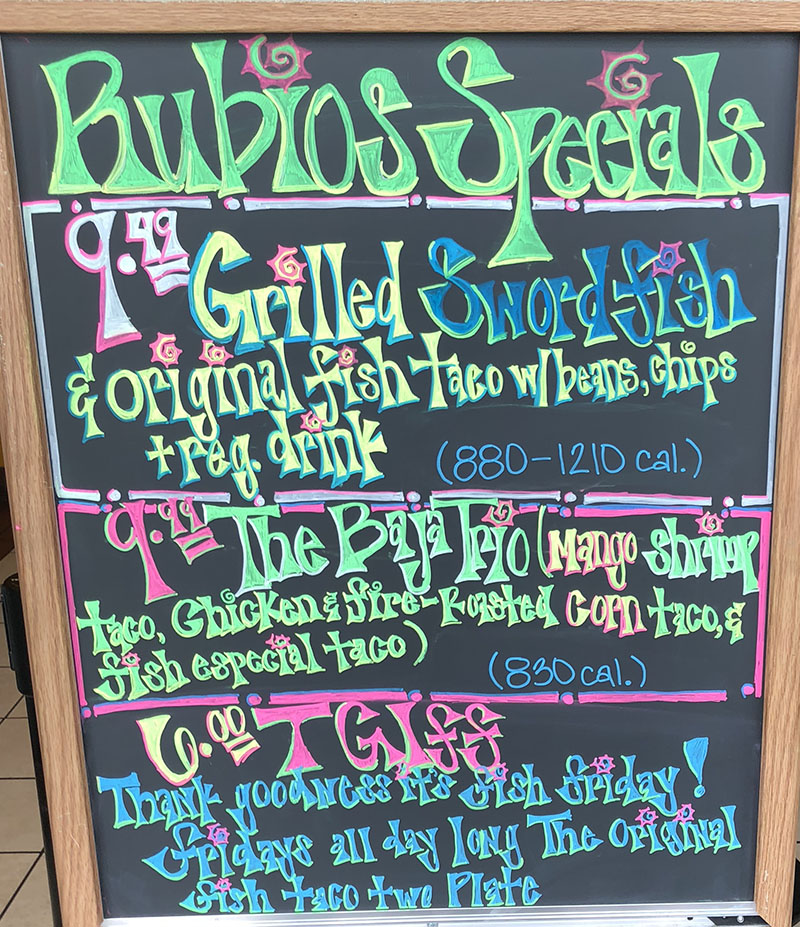 Rubios Specials
9.49 Grilled Swordfish
& original fish taco w/beans, chips
+ reg. drink (880-1210 cal.)
9.99 The Baja Trio (Mango shrimp
taco, Chicken & fire-Roasted Corn taco, &
fish especial taco) (830 cal.)
6.00 TGIFF
Thank goodness it's fish friday!
fridays all day long The Original
fish taco two Plate